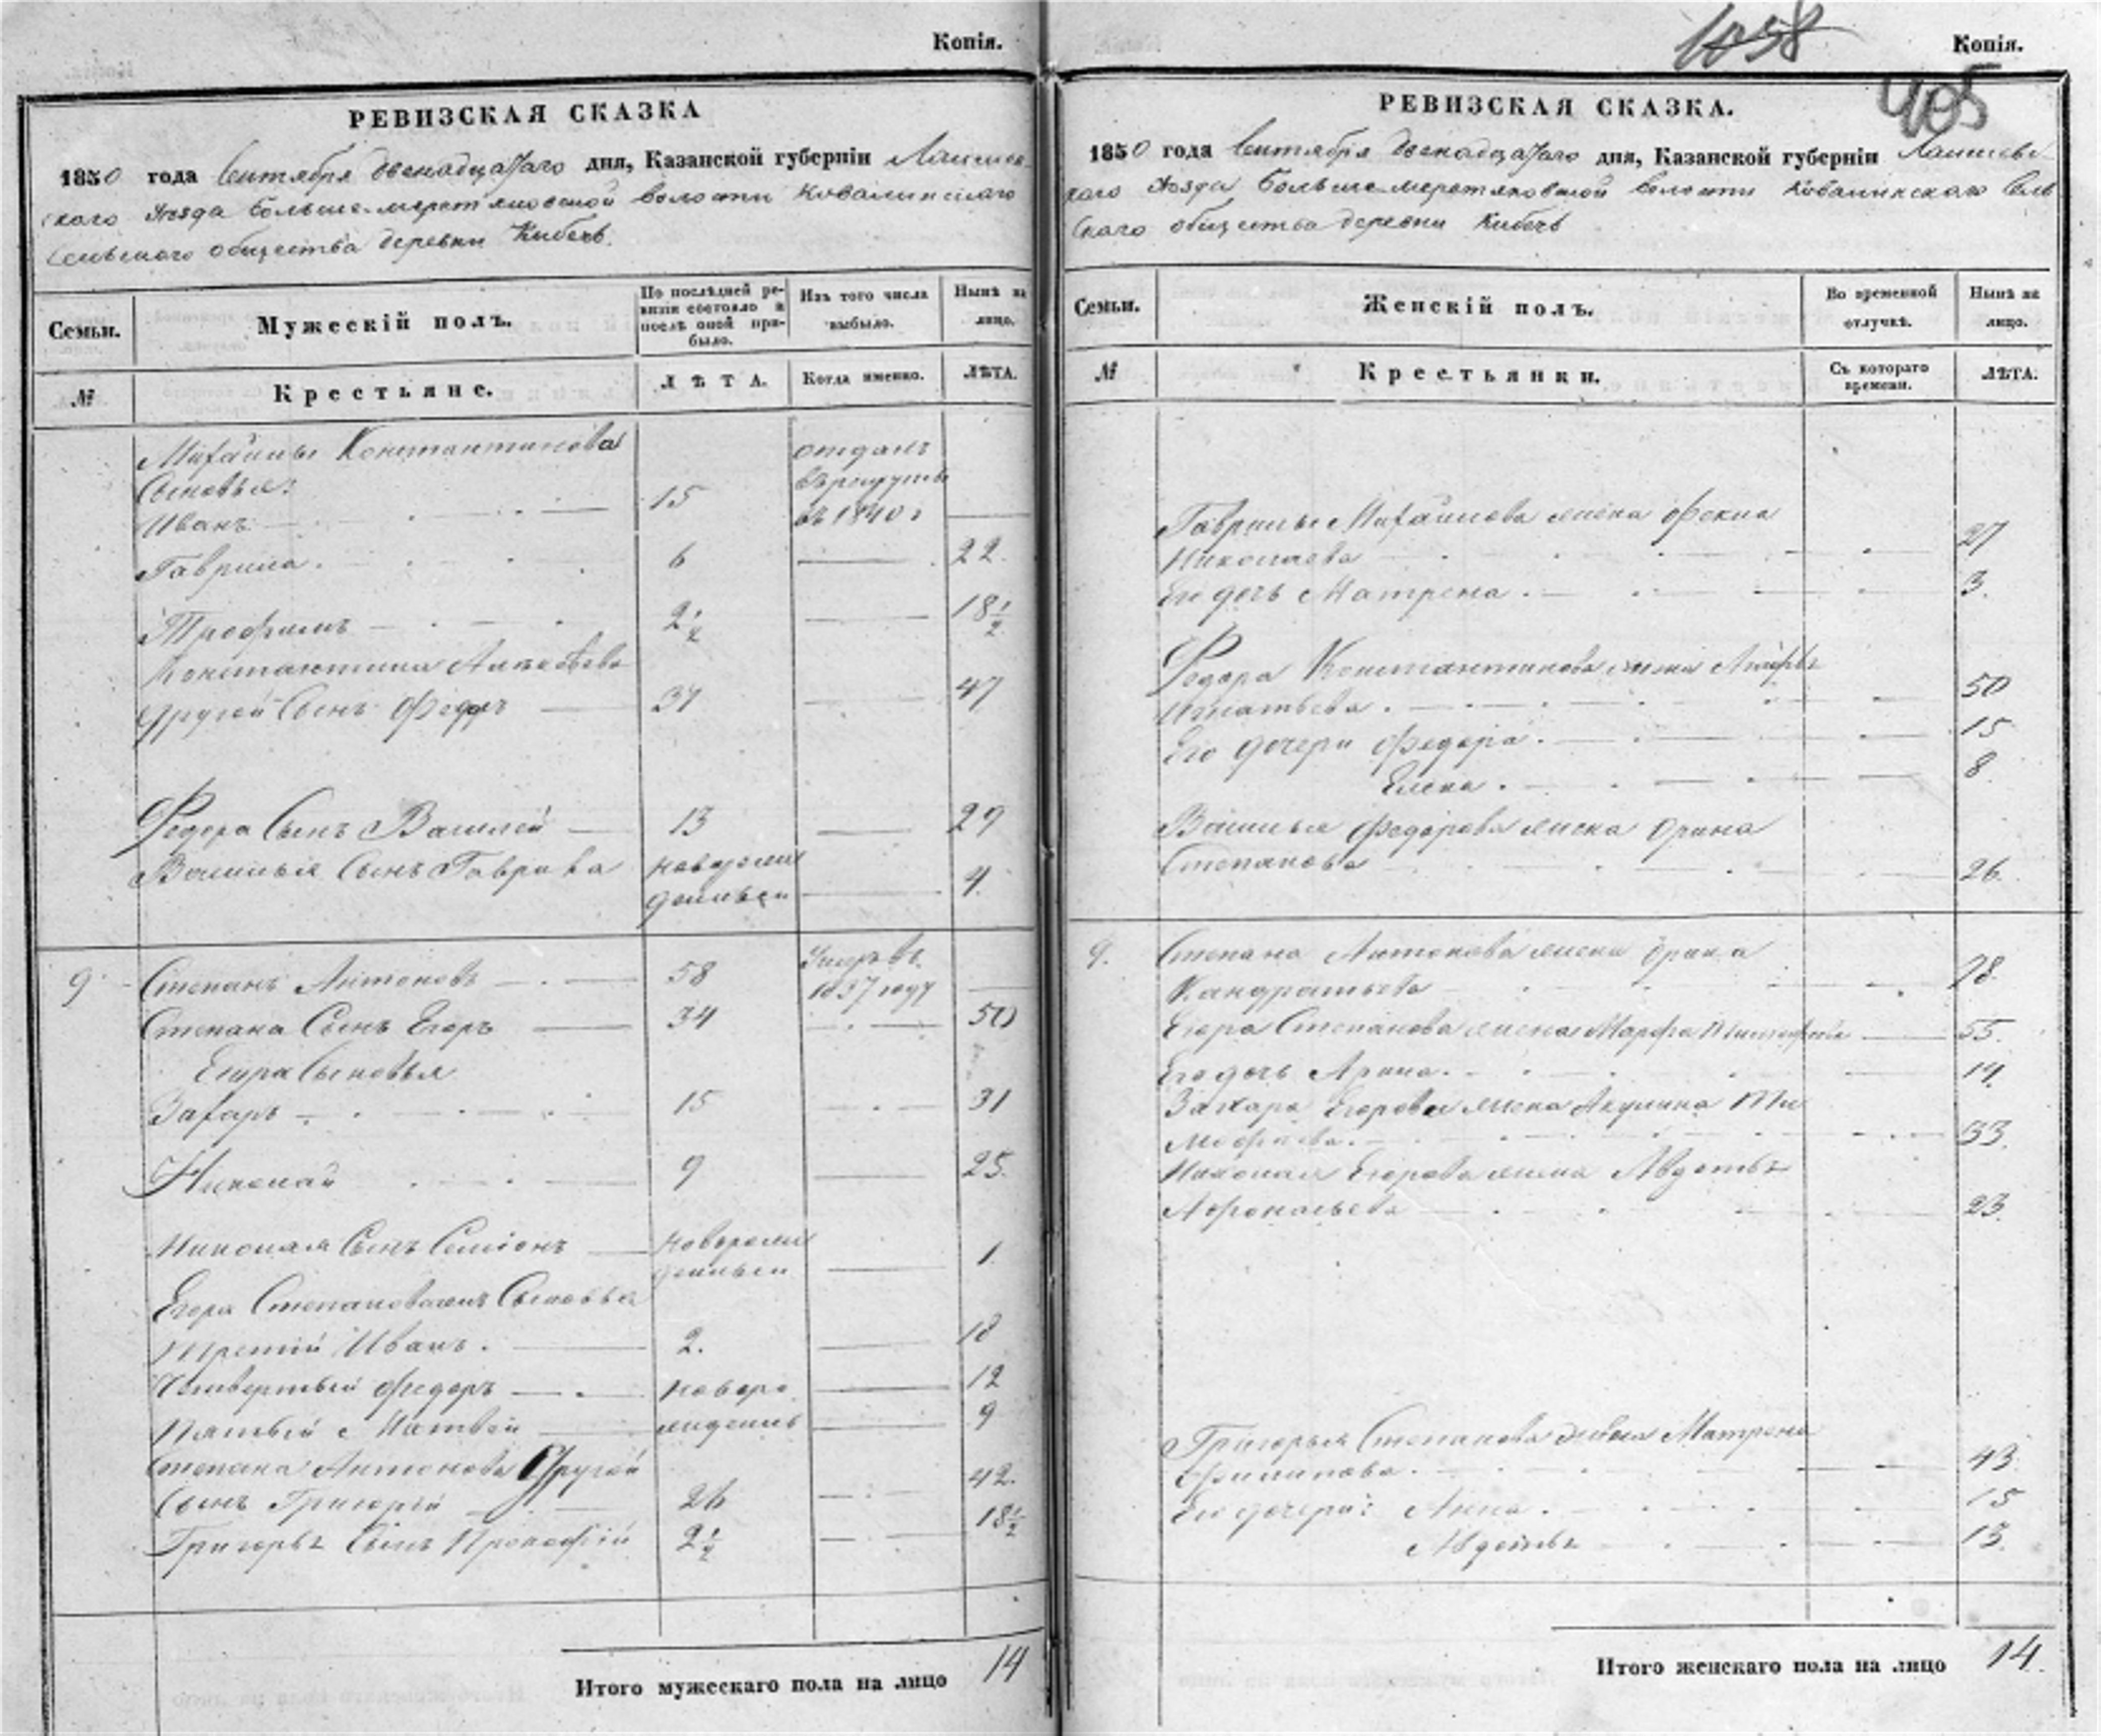 Копія.
РЕВИЗСКАЯ СКАЗКА
1850 года Сентября двенадцатаго дня, Казанской губерніи Лаишев
скаго уѣзда Больше-меретяковской волости Ковалинскаго
Сельскаго общества деревни Кибечь.
Семьи.
Мужескій полъ.
По послѣдней ре-
визіи состояло и
послѣ оной при-
было.
Изъ того числа
выбыло.
Нынѣ на
лицо.
№
Крестьяне.
ЛѢТА.
Когда именно.
ЛѢТА.
Михайлы Константинова
Сыновья:
Иванъ 15 отданъ въ рекруты въ 1840 г
Гаврила. 6 22.
Трофимъ 2 1/2 18 1/2
Константина
другой Сынъ Федоръ 37 47
Федора Сынъ Василей 13 29
Василья Сынъ Гаврила новорожденный 4.
9 Степанъ Антоновъ 58 Умеръ въ 1837 году
Степана Сынъ Егоръ 34 50
Егора Сыновья
Захаръ 15 31
Николай 9 25.
Николая Сынъ Семіонъ новорожденный 1
Егора Степанова Сыновья
третій Иванъ. 2. 18
Четвертый Федоръ новоро 12
Пятый Матвей жденные 9
Степана Антонова другой
Сынъ Григорій 26 42.
Григорья Сынъ Прокофій 2 1/2 18 1/2
Итого мужескаго пола на лицо 14
1058
Копія.
405
РЕВИЗСКАЯ СКАЗКА.
1850 года Сентября двенадцатаго дня, Казанской губерніи Лаишев
скаго уѣзда Больше-меретяковской волости Ковалинскаго Сель
скаго общества деревни Кибечь
Семьи.
Женскій полъ.
Во временной
отлучкѣ.
Нынѣ на
лицо.
№
Крестьянки.
Съ котораго
времени.
ЛѢТА.
Гаврилы Михайлова жена Фекла
Николаева 27
Его дочь Матрена. 3.
Федора Константинова жена
Игнатьева. 50
Его дочери Федора. 15
Елена. 8
Василья Федорова жена Орина
Степанова 26.
9. Степана Антонова жена Орина
Кандратьева 78.
Егора Степанова жена Марфа 55.
Его дочь Арина. 14
Захара Егорова жена Акулина Ти
мофеева. 33.
Николая Егорова жена Авдотья
Афонасьева 23.
Григорья Степанова жена Матрена
Филипова. 43
Его дочери: Анна. 15
Авдотья 13.
Итого женскаго пола на лицо 14.